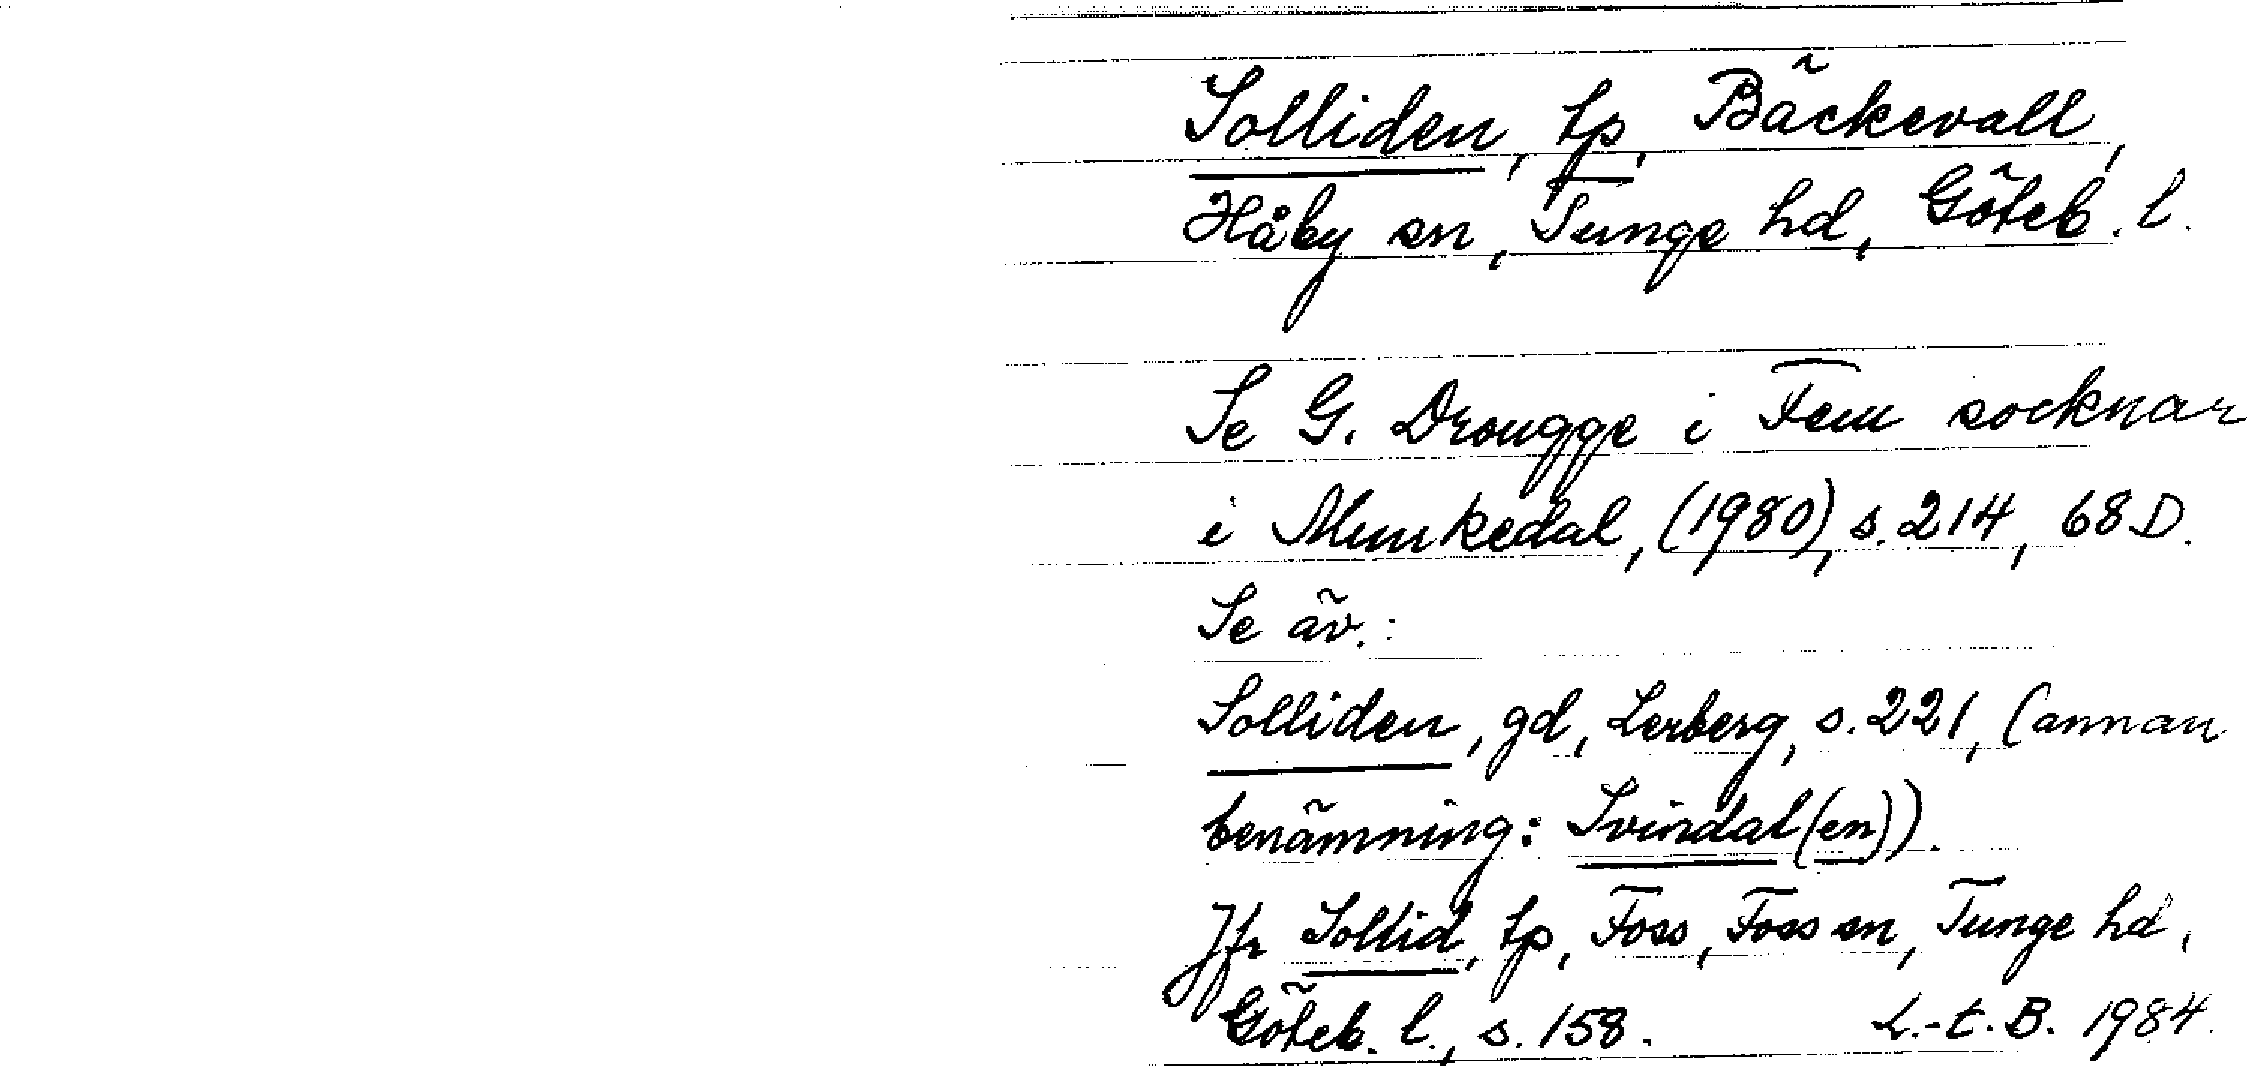 Solliden, tp, Bäckevall,
Håby sn, Tunge hd, Göteb. l.
Se G. Drougge i Fem socknar
i Munkedal, (1980), s. 214, 68 D.
Se äv.:
Solliden, gd, Lerberg, s. 221, (annan
benämning: Svindal(en)).
Jfr Sollid, tp, Foss, Foss sn, Tunge hd,
Göteb. l., s. 158. L.-t. B. 1984.